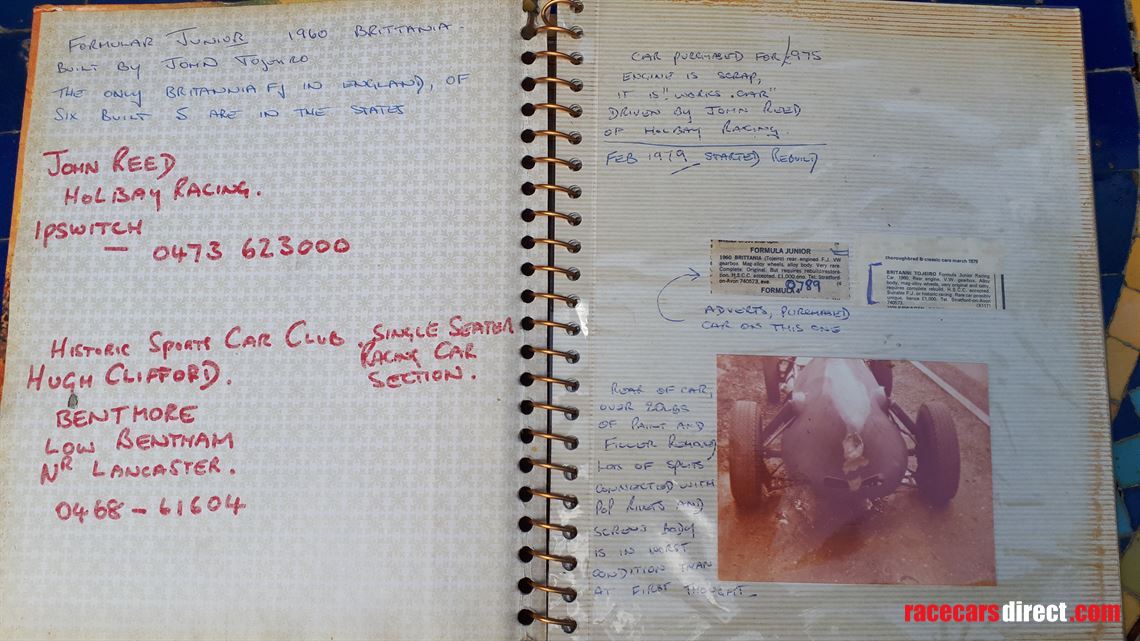 FORMULAR JUNIOR 1960 BRITTANIA.
BUILT BY JOHN TOJEIRO
THE ONLY BRITANNIA FJ IN ENGLAND, OF
SIX BUILT 5 ARE IN THE STATES
JOHN REED
HOLBAY RACING.
IPSWITCH
— 0473 623000
HISTORIC SPORTS CAR CLUB. SINGLE SEATER
RACING CAR
SECTION.
HUGH CLIFFORD.
BENTMORE
LOW BENTHAM
NR LANCASTER.
0468-61604
CAR PURCHASED FOR £975
ENGINE IS SCRAP,
IT IS "WORKS CAR"
DRIVEN BY JOHN REED
OF HOLBAY RACING.
FEB 1979 STARTED REBUILD
FORMULA JUNIOR
1960 BRITTANIA (Tojeiro) rear engined F.J. VW
gearbox. Mag-alloy wheels, alloy body. Very rare.
Complete. Original. But requires rebuild/restora-
tion. H.S.C.C. accepted. £1,000 ono. Tel: Stratford-
on-Avon 740573, eve.
0789
FORMULA 4
thoroughbred & classic cars march 1979
BRITANNI TOJEIRO Formula Junior Racing
Car 1960. Rear engine. V.W. gearbox. Alloy
body, mag-alloy wheels, very original and
requires complete rebuild. H.S.C.C. accepted.
historic racing. Rare car possibly
unique, hence £1,000. Tel: Stratford-on-Avon
740573.
ADVERTS, PURCHASED
CAR ON THIS ONE
REAR OF CAR,
OVER 20LBS
OF PAINT AND
FILLER REMOVED
LOTS OF SPLITS
CONNECTED WITH
POP RIVETS AND
SCREWS BODY
IS IN WORST
CONDITION THAN
AT FIRST THOUGHT.
racecarsdirect.com